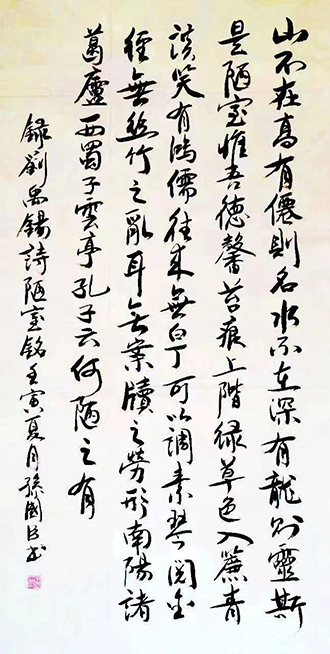 山不在高有僊則名水不在深有龍則靈斯
是陋室惟吾德馨苔痕上階緑草色入簾青
談笑有鴻儒往来無白丁可以調素琴閲金
經無絲竹之亂耳無案牘之勞形南陽諸
葛廬西蜀子雲亭孔子云何陋之有
録劉禹錫詩陋室銘壬寅夏月孫國書